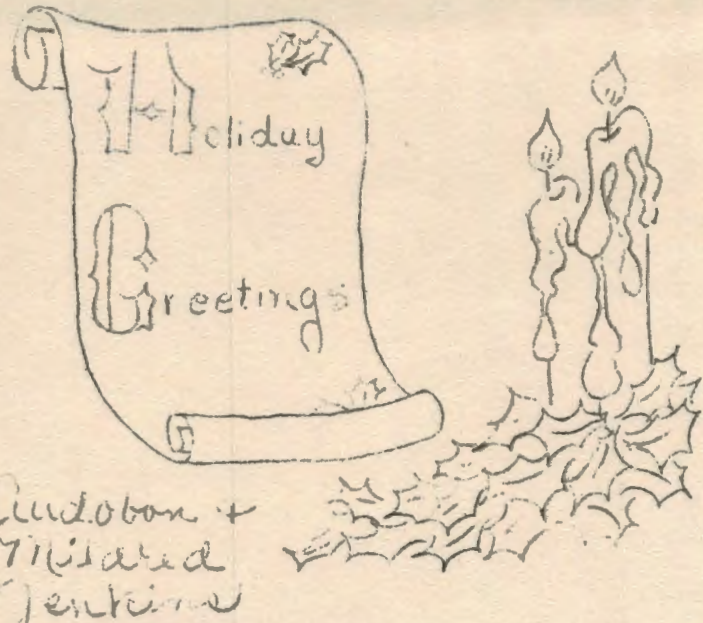 Holiday
Greetings
Audobon +
Mildred
Jenkins